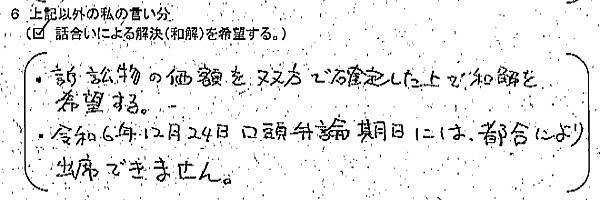 6 上記以外の私の言い分
(☑ 話合いによる解決(和解)を希望する。)
・訴訟物の価額を双方で確定した上で和解を
希望する。
・令和6年12月24日口頭弁論期日には、都合により
出席できません。